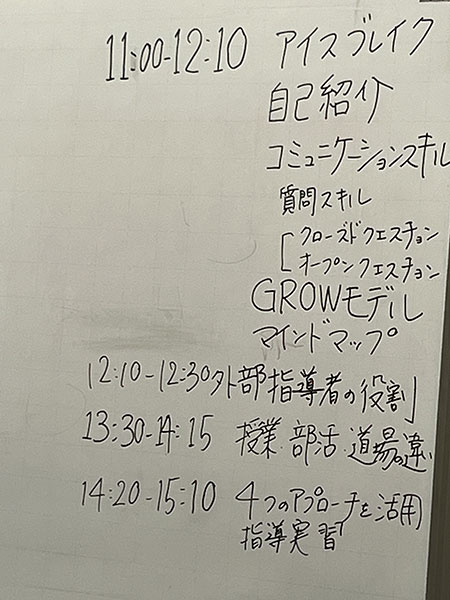 11:00-12:10 アイスブレイク
自己紹介
コミュニケーションスキル
質問スキル
クローズドクエスチョン
オープンクエスチョン
GROWモデル
マインドマップ
12:10-12:30 外部指導者の役割
13:30-14:15 授業 部活 道場の違い
14:20-15:10 4つのアプローチを活用
指導実習